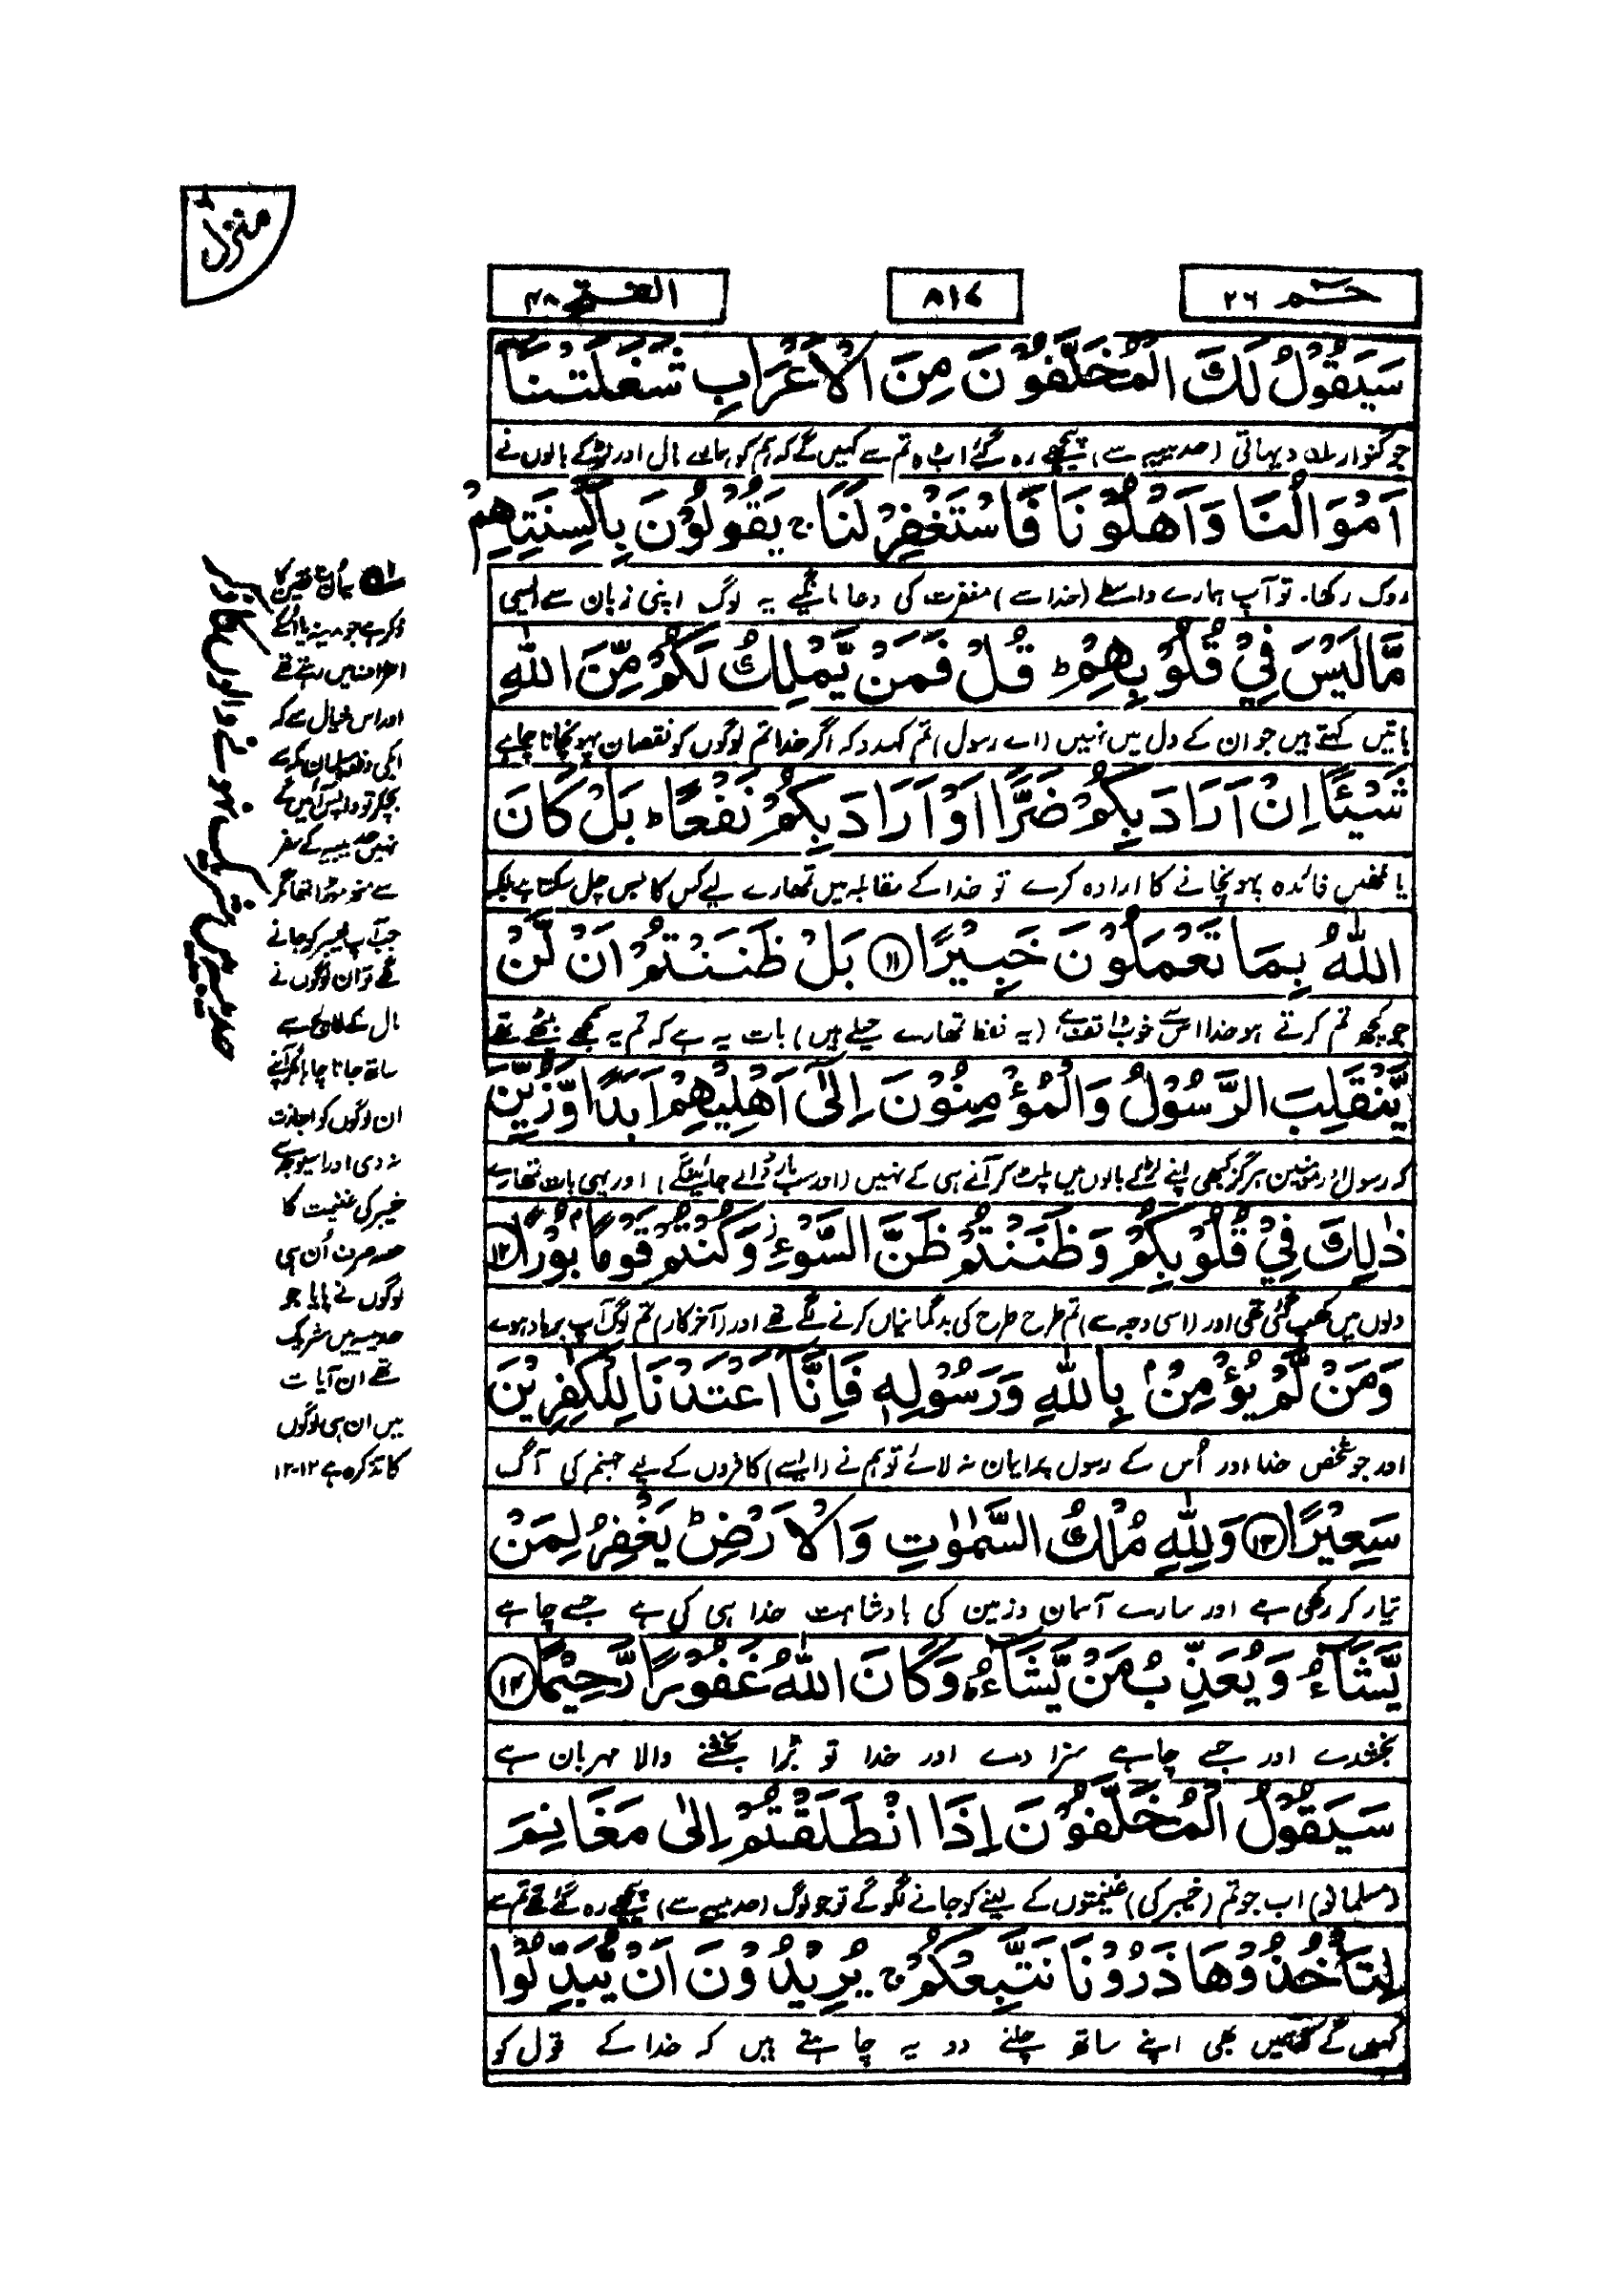 منزل
حٰمٓ ۲۶
۸۱۷
الفتح ۴۸
سَيَقُوْلُ لَكَ الْمُخَلَّفُوْنَ مِنَ الْاَعْرَابِ شَغَلَتْنَاۤ
جو گنوار دیہاتی (حدیبیہ سے) پیچھے رہ گئے اب وہ تم سے کہیں گے کہ ہم کو ہمارے مال اور لڑکے بالوں نے
اَمْوَالُنَا وَاَهْلُوْنَا فَاسْتَغْفِرْ لَنَاۚ يَقُوْلُوْنَ بِاَلْسِنَتِهِمْ
روک رکھا۔ تو آپ ہمارے واسطے (خدا سے) مغفرت کی دعا مانگیے یہ لوگ اپنی زبان سے ایسی
مَّا لَيْسَ فِيْ قُلُوْبِهِمْؕ قُلْ فَمَنْ يَّمْلِكُ لَكُمْ مِّنَ اللّٰهِ
باتیں کہتے ہیں جو ان کے دل میں نہیں (اے رسول) تم کہدو کہ اگر خدا تم لوگوں کو نقصان پہونچانا چاہے
شَيْـًٔا اِنْ اَرَادَ بِكُمْ ضَرًّا اَوْ اَرَادَ بِكُمْ نَفْعًاؕ بَلْ كَانَ
یا تمھیں فائدہ پہونچانے کا ارادہ کرے تو خدا کے مقابلہ میں تمھارے لیے کس کا بس چل سکتا ہے بلکہ
اللّٰهُ بِمَا تَعْمَلُوْنَ خَبِيْرًا ۱۱ بَلْ ظَنَنْتُمْ اَنْ لَّنْ
جو کچھ تم کرتے ہو خدا اس سے خوب واقف ہے (یہ فقط تمھارے حیلے ہیں) بات یہ ہے کہ تم یہ سمجھے بیٹھے تھے
يَّنْقَلِبَ الرَّسُوْلُ وَالْمُؤْمِنُوْنَ اِلٰۤى اَهْلِيْهِمْ اَبَدًا وَّزُيِّنَ
کہ رسول اور مومنین ہرگز کبھی اپنے لڑکے بالوں میں پلٹ کر آنے ہی کے نہیں (اور سب مار ڈالے جائینگے) اور یہی بات تمھارے
ذٰلِكَ فِيْ قُلُوْبِكُمْ وَظَنَنْتُمْ ظَنَّ السَّوْءِۖ وَكُنْتُمْ قَوْمًۢا بُوْرًا ۱۲
دلوں میں کھپ گئی تھی اور (اسی وجہ سے) تم طرح طرح کی بدگمانیاں کرنے لگے تھے اور (آخر کار) تم لوگ آپ برباد ہوے
وَمَنْ لَّمْ يُؤْمِنْۢ بِاللّٰهِ وَرَسُوْلِهٖ فَاِنَّاۤ اَعْتَدْنَا لِلْكٰفِرِيْنَ
اور جو شخص خدا اور اُس کے رسول پر ایمان نہ لائے تو ہم نے (ایسے) کافروں کے لیے جہنم کی آگ
سَعِيْرًا ۱۳ وَلِلّٰهِ مُلْكُ السَّمٰوٰتِ وَالْاَرْضِؕ يَغْفِرُ لِمَنْ
تیار کر رکھی ہے اور سارے آسمان و زمین کی بادشاہت خدا ہی کی ہے جسے چاہے
يَّشَآءُ وَيُعَذِّبُ مَنْ يَّشَآءُؕ وَكَانَ اللّٰهُ غَفُوْرًا رَّحِيْمًا ۱۴
بخشدے اور جسے چاہے سزا دے اور خدا تو بڑا بخشنے والا مہربان ہے
سَيَقُوْلُ الْمُخَلَّفُوْنَ اِذَا انْطَلَقْتُمْ اِلٰى مَغَانِمَ
(مسلمانو) اب جو تم (خیبر کی) غنیمتوں کے لینے کو جانے لگو گے تو جو لوگ (حدیبیہ سے) پیچھے رہ گئے تھے تم سے
لِتَاْخُذُوْهَا ذَرُوْنَا نَتَّبِعْكُمْۚ يُرِيْدُوْنَ اَنْ يُّبَدِّلُوْا
کہیں گے کہ ہمیں بھی اپنے ساتھ چلنے دو یہ چاہتے ہیں کہ خدا کے قول کو
ذکر ہے جو مدینہ یا اُسکے
اطراف میں رہتے تھے
اور اس خیال سے کہ
ابکی دفعہ مسلمان مکہ سے
بچکر تو واپس آئیں گے
نہیں حدیبیہ کے سفر
سے منہ موڑا تھا مگر
جب آپ خیبر کو جانے
لگے تو ان لوگوں نے
مال کے لالچ سے
ساتھ جانا چاہا مگر آپنے
ان لوگوں کو اجازت
نہ دی اور اسیوجہ سے
خیبر کی غنیمت کا
حصہ صرف اُن ہی
لوگوں نے پایا جو
حدیبیہ میں شریک
تھے ان آیات
میں ان ہی لوگوں
کا تذکرہ ہے ۱۲-۱۲
حدیبیہ میں شریک نہ ہونے والوں کا ذکر